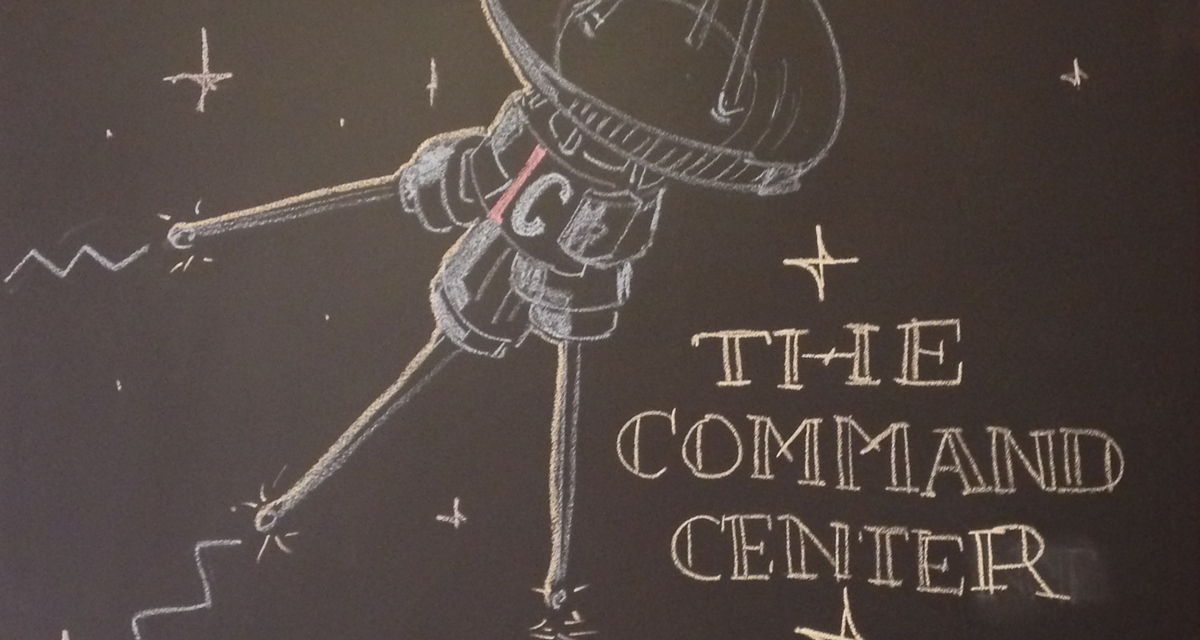 C
THE
COMMAND
CENTER